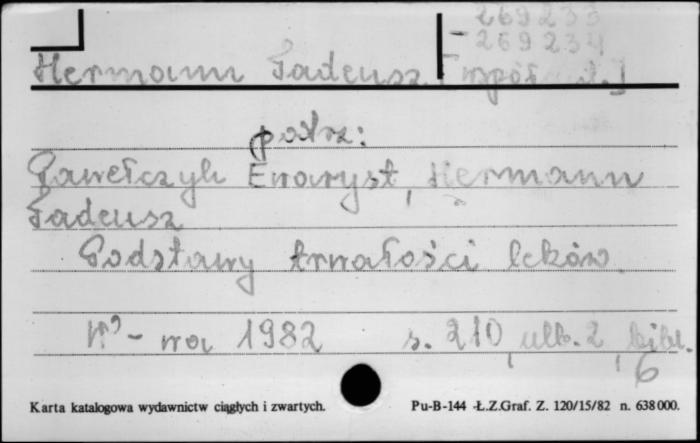 269233
- 269234
Hermann Tadeusz [współaut.]
patrz:
Pawełczyk Ewaryst, Hermann
Tadeusz
Podstawy trwałości leków.
W-wa 1982 s. 210, ulb. 2, bibl.
6
Karta katalogowa wydawnictw ciągłych i zwartych. Pu-B-144 -Ł.Z.Graf. Z. 120/15/82 n. 638000.